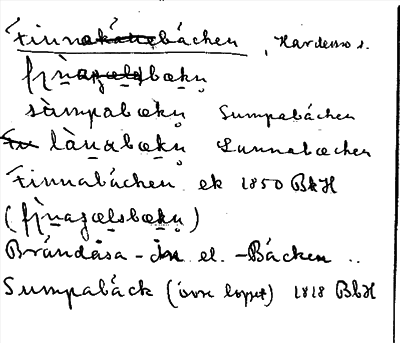 Finnakånebäcken, Hardemo s.
fìnagælsbækṇ
sùmpabækṇ Sumpabäcken
Fi lùnabækṇ Lunnabæcken
Finnabäcken ek 1850 BkH
(fìnagælsbækṇ)
Brändåsa-ån el. -Bäcken ..
Sumpabäck (övre loppet) 1818 BbH